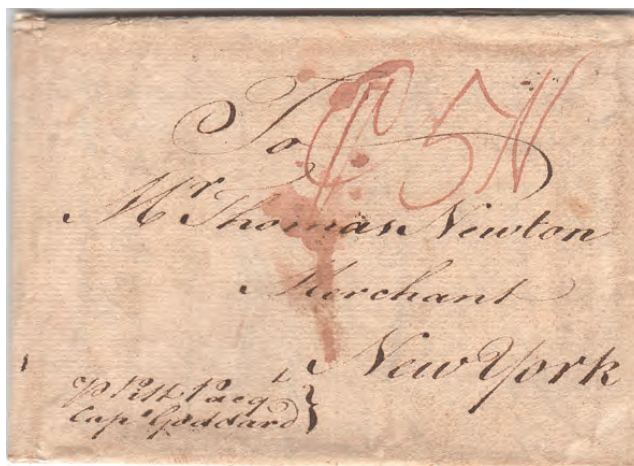 To
Mr Thomas Newton
Merchant
New York
Pitt Pacqt
Capt Goddard
5 N